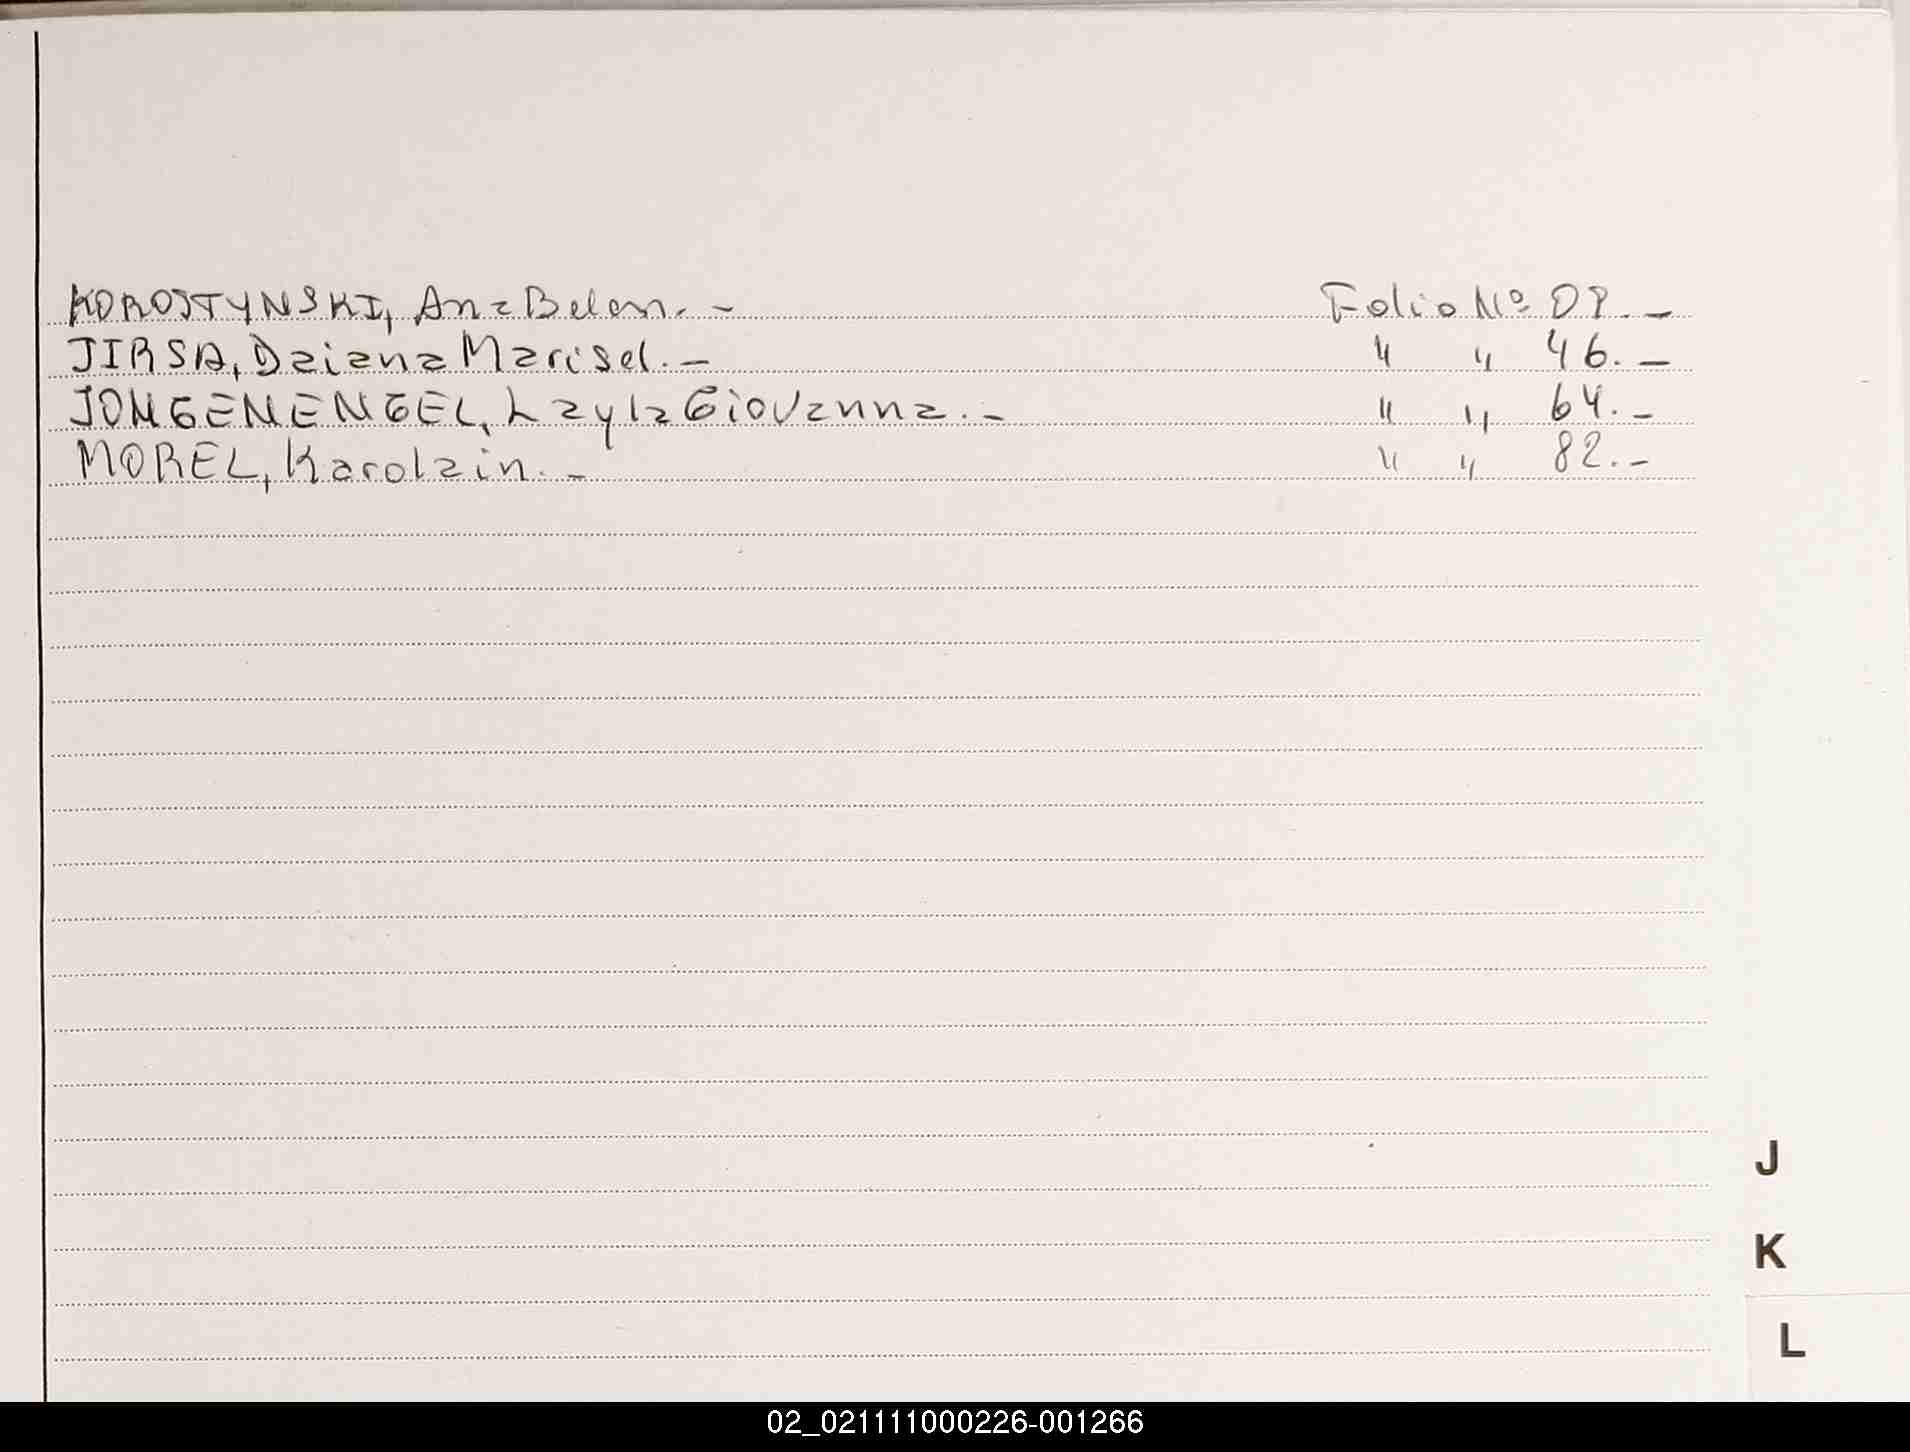 KOROSTYNSKI, Ana Belen.- Folio Nº 07.-
JIRSA, Daiana Marisel.- " " 46.-
JONGENENGEL, Layla Giovanna.- " " 64.-
MOREL, Karolain.- " " 82.-
J
K
L
02_021111000226-001266